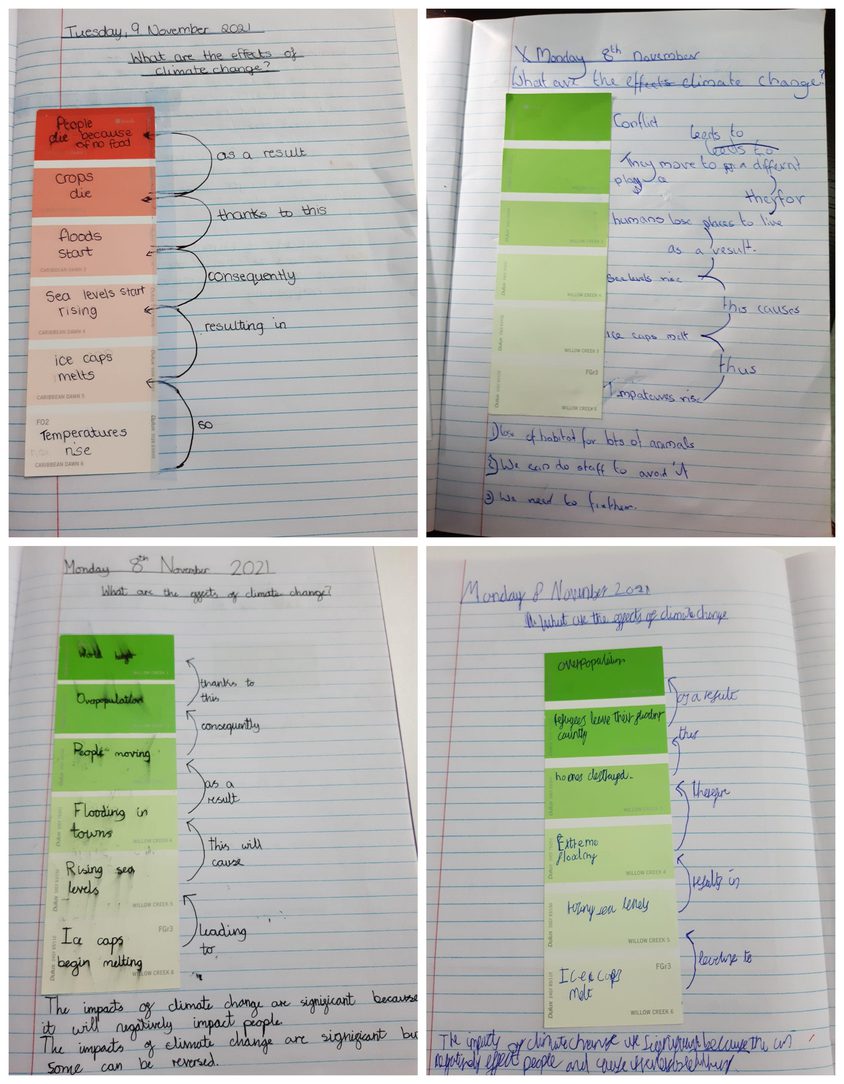 Tuesday, 9 November 2021
What are the effects of
climate change?
People
die because
of no food
as a result
Crops
die
thanks to this
floods
start
CARIBBEAN DAWN 3
consequently
Sea levels start
rising
CARIBBEAN DAWN 4
resulting in
ice caps
melts
CARIBBEAN DAWN 5
so
FO2
Temperatures
rise
CARIBBEAN DAWN 6
X Monday 8th November
What are the effects climate change?
Conflict
leeds to
leeds to
They move to a differnt
therfor
humans lose places to live
as a result.
Sea levels rise
WILLOW CREEK 4
this causes
ice caps melt
WILLOW CREEK 5
thus
FGr3
rise
WILLOW CREEK 6
1) lose of habitat for lots of animals
2) We can do staff to avoid it
3) We need to
Monday 8th November 2021
What are the effects of climate change?
World
WILLOW CREEK 1
thanks to
this
Ovopopulation
consequently
People moving
as a
result
Flooding in
towns
WILLOW CREEK 4
this will
cause
Rising sea
levels
WILLOW CREEK 5
leading
to
FGr3
Ice caps
begin melting
WILLOW CREEK 6
The impacts of climate change are significant because
it will negatively impact people.
The impacts of climate change are significant bu
some can be reversed.
Monday 8 November 2021
What are the effects of climate change
overpopulation
as a result
refugees leave their
country
thus
homes destroyed.
Extreme
flooding
WILLOW CREEK 4
results in
sea levels
WILLOW CREEK 5
to
Ice caps
melt
FGr3
WILLOW CREEK 6
The impacts of climate change are significant because the
negatively effect people and cause